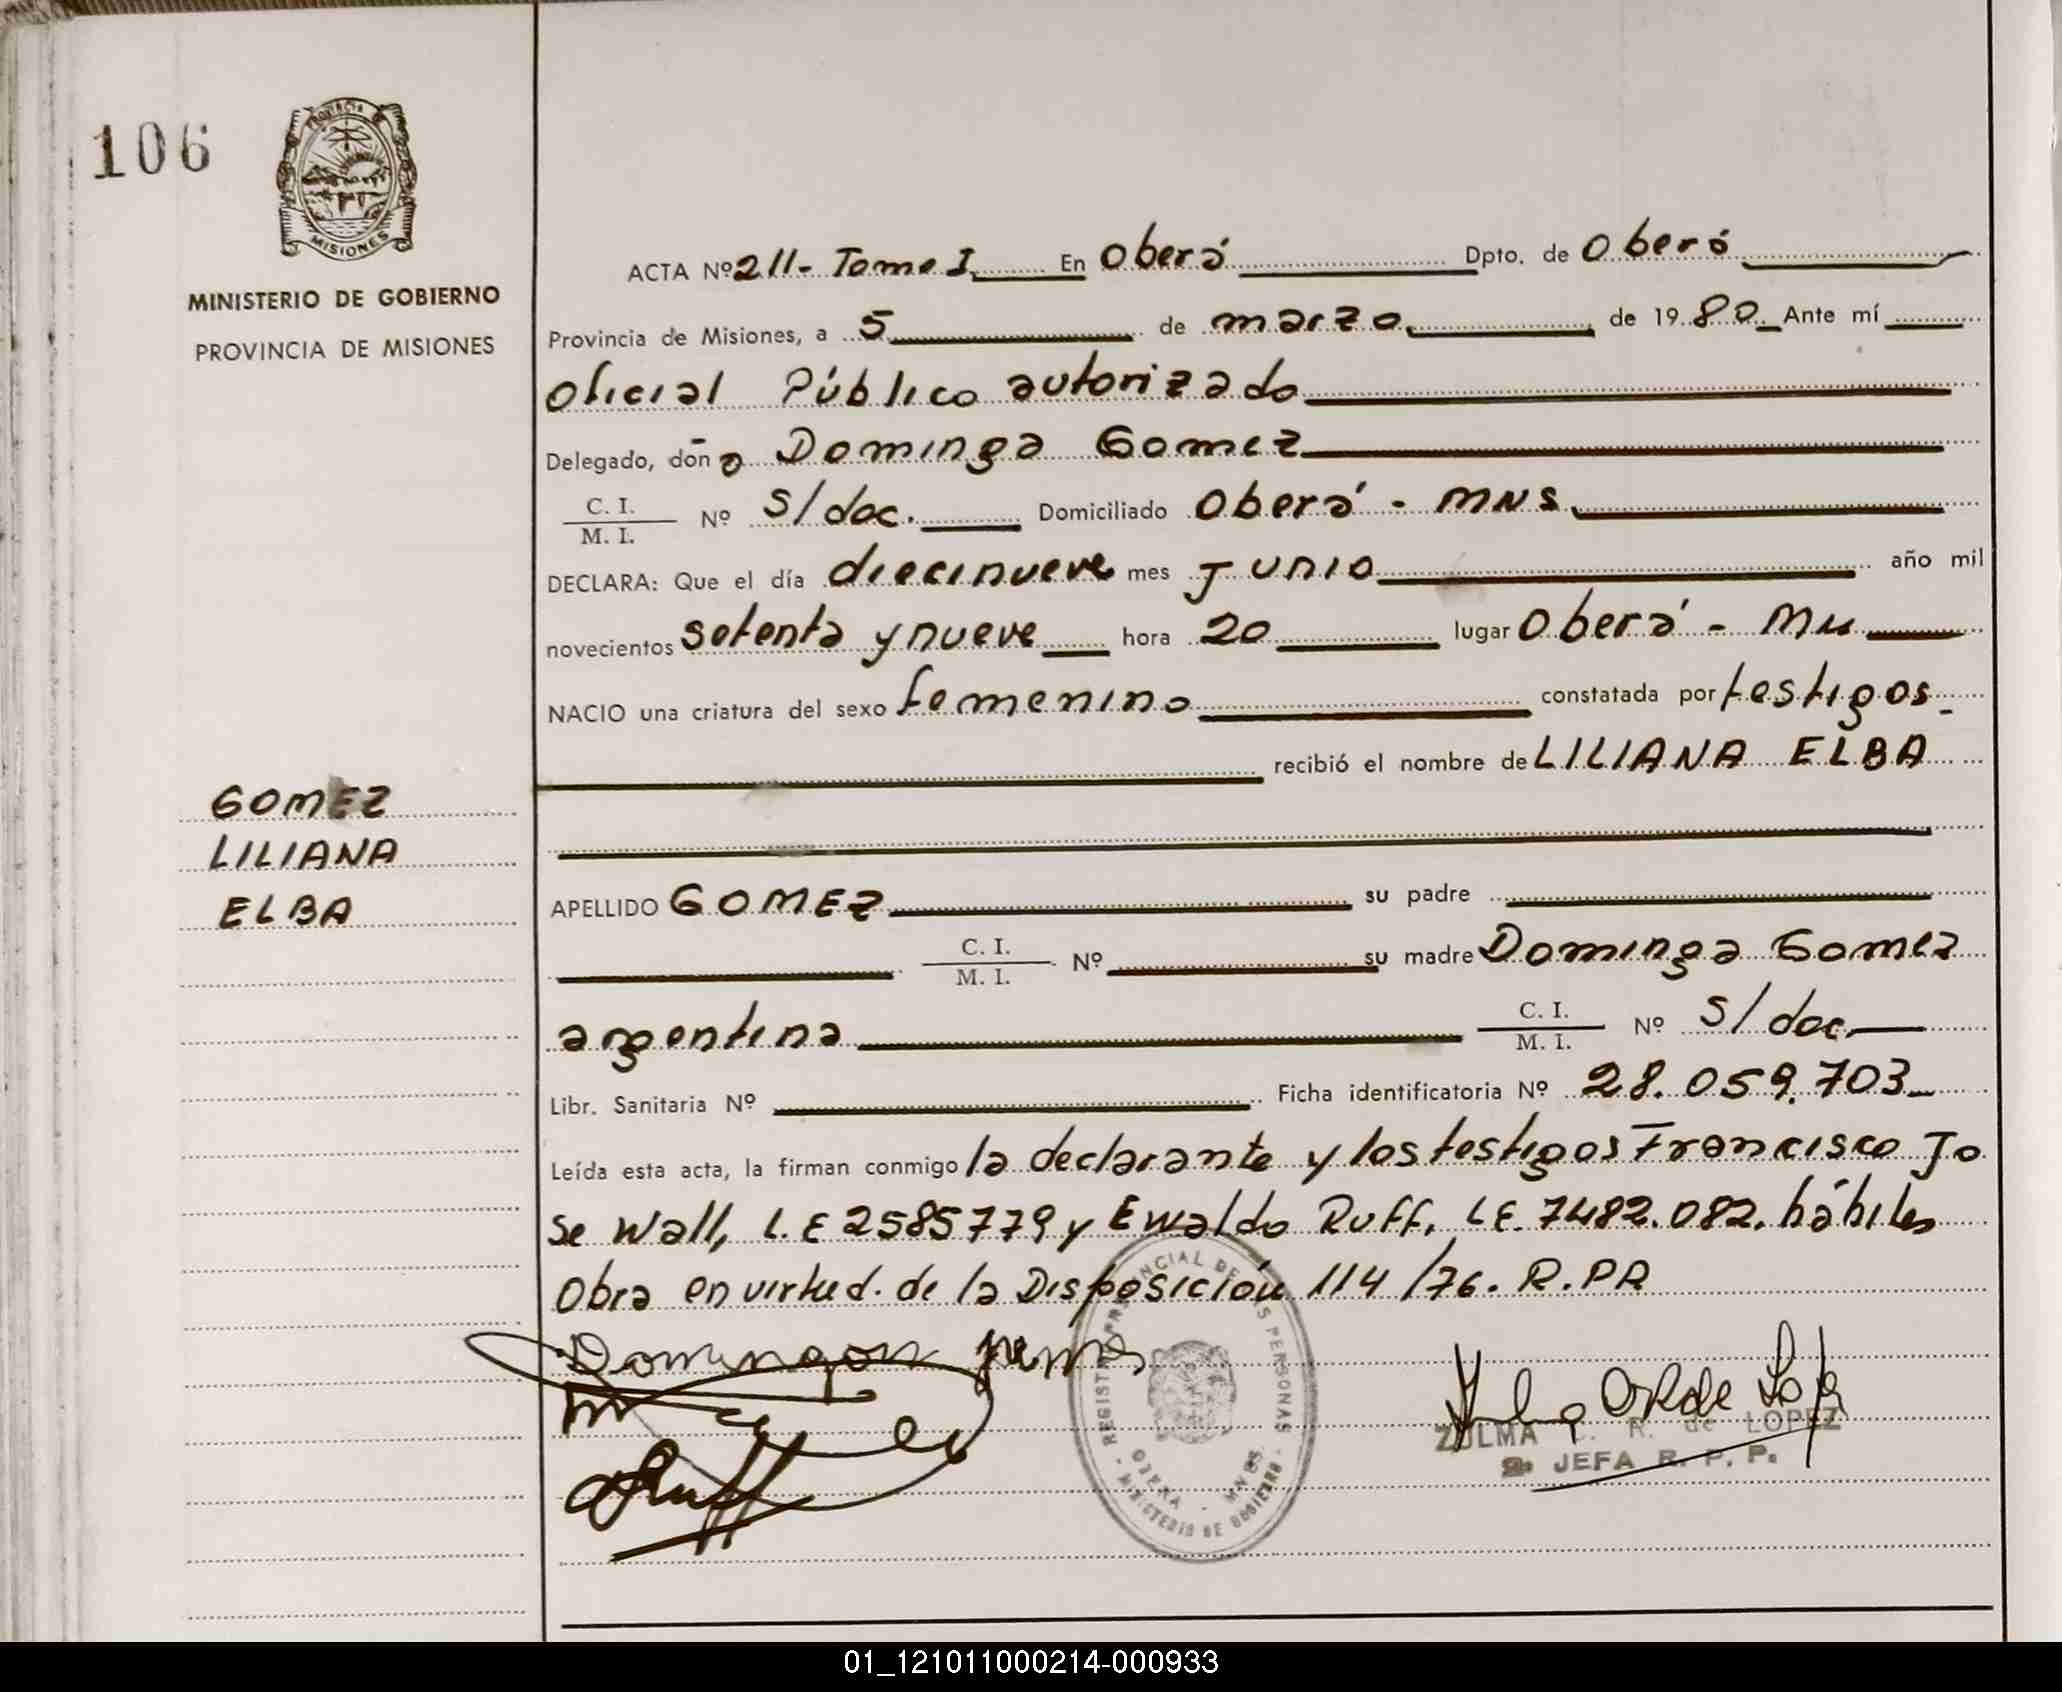 106
PROVINCIA
MISIONES
MINISTERIO DE GOBIERNO
PROVINCIA DE MISIONES
GOMEZ
LILIANA
ELBA
ACTA Nº 211 - Tomo I En Oberá Dpto. de Oberá
Provincia de Misiones, a 5 de marzo de 1980 Ante mí
Oficial Público autorizado
Delegado, don̄a Dominga Gomez
C. I. / M. I. Nº S/doc. Domiciliado Oberá - MNS.
DECLARA: Que el día diecinueve mes Junio año mil
novecientos setenta y nueve hora 20 lugar Oberá - Mn
NACIO una criatura del sexo femenino constatada por testigos.
recibió el nombre de LILIANA ELBA
APELLIDO GOMEZ su padre
C. I. / M. I. Nº su madre Dominga Gomez
argentina C. I. / M. I. Nº S/doc.
Libr. Sanitaria Nº Ficha identificatoria Nº 28.059.703
Leída esta acta, la firman conmigo la declarante y los testigos Francisco Jo
se Wall, L.E 2585779 y Ewaldo Ruff, LE. 7482.082. hábiles
Obra en virtud. de la Disposición 114/76. R.PR
ZULMA R. de LOPEZ
2º JEFA R. P. P.
REGISTRO PROVINCIAL DE LAS PERSONAS
OBERA - MNES
MINISTERIO DE GOBIERNO
01_121011000214-000933